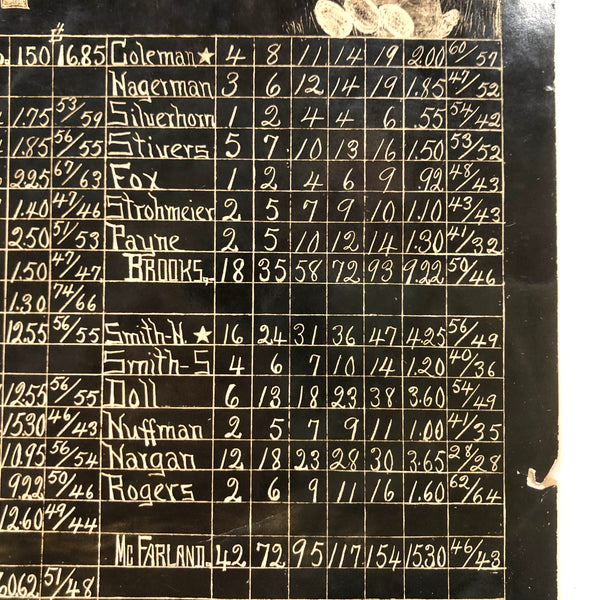 150 $16.85 Coleman★ 4 8 11 14 19 2.00 60/57
Nagerman 3 6 12 14 19 1.85 47/52
1.75 53/59 Silverhorn 1 2 4 4 6 .55 54/42
1.85 56/55 Stivers 5 7 10 13 16 1.50 53/52
2.25 67/63 Fox 1 2 4 6 9 .92 48/43
1.40 47/46 Strohmeier 2 5 7 9 10 1.10 43/43
2.50 51/53 Payne 2 5 10 12 14 1.30 41/32
1.50 47/47 BROOKS, 18 35 58 72 93 9.22 50/46
1.30 74/66
12.55 56/55 Smith-N. ★ 16 24 31 36 47 4.25 56/49
Smith-S 4 6 7 10 14 1.20 40/36
12.55 56/55 Doll 6 13 18 23 38 3.60 54/49
15.30 46/43 Nuffman 2 5 7 9 11 1.00 41/35
10.95 56/54 Nargan 12 18 23 28 30 3.65 28/28
9.22 50/46 Rogers 2 6 9 11 16 1.60 62/64
12.60 49/44
MCFARLAND. 42 72 95 117 154 15.30 46/43
60.62 51/48